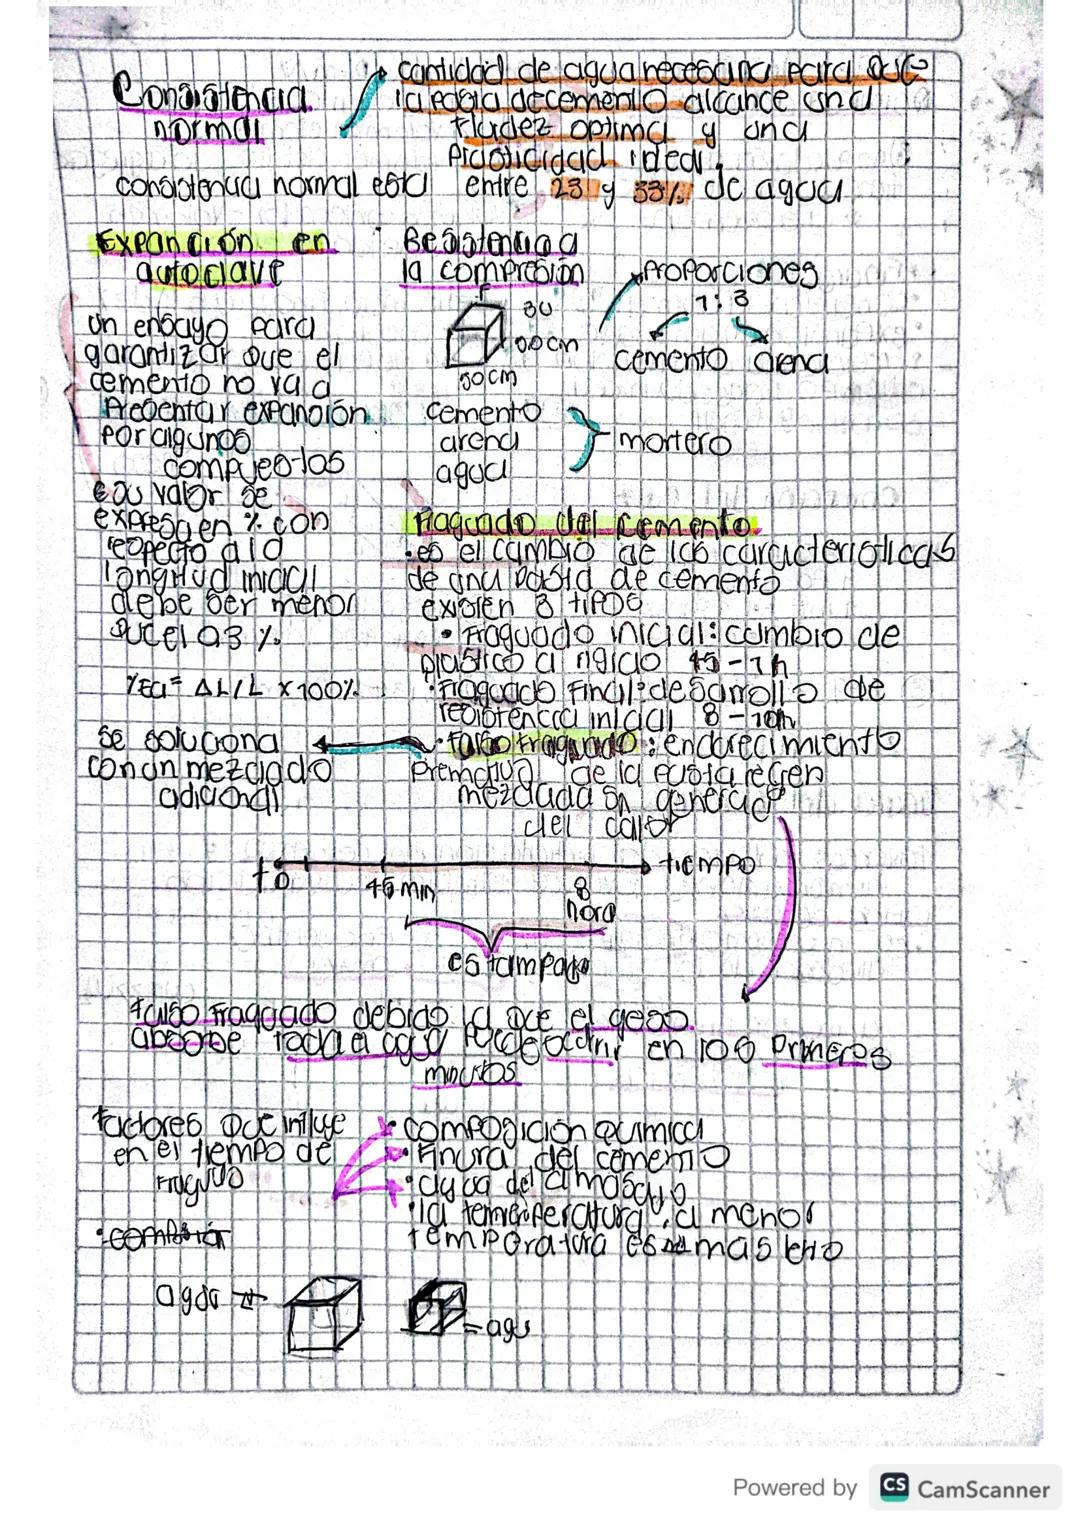 Consistencia
normal
cantidad de agua necesaria para que
la pasta de cemento alcance una
fluidez optima y una
Plasticidad ideal.
consistencia normal esta entre 23 y 33% de agua
Expanción en
autoclave
un ensayo para
garantizar que el
cemento no va a
Presentar expansion
Por algunos
compuestos
su valor se
expresa en % con
respecto a la
longitud inicial
debe ser menor
que el 0.8 %
%Ea = ΔL/L x 100%
Resistencia a
la compresión
F
50 cm
Proporciones
1:3
cemento arena
cemento
arena
agua
mortero
Fraguado del cemento
• es el cambio de las caracteristicas
de una pasta de cemento
existen 3 tipos
• Fraguado inicial: cambio de
plastico a rigido 45 - 1h
• Fraguado Final: desarrollo de
resistencia inicial 8 - 10h
• falso fraguado: endurecimiento
Prematuro de la pasta recien
mezclada sin generac
del calor
se soluciona
con un mezclado
adicional
to
45 min
8
hora
tiempo
es tampago
falso fraguado debido a que el yeso
absorbe toda el agua Puede ocurrir en los primeros
minutos
factores que influye
en el tiempo de
Fraguado
• composición quimica
• Finura del cemento
• agua del amasado
• la temperatura, a menor
temporatura es mas lento
agua
= agu
Powered by CS CamScanner